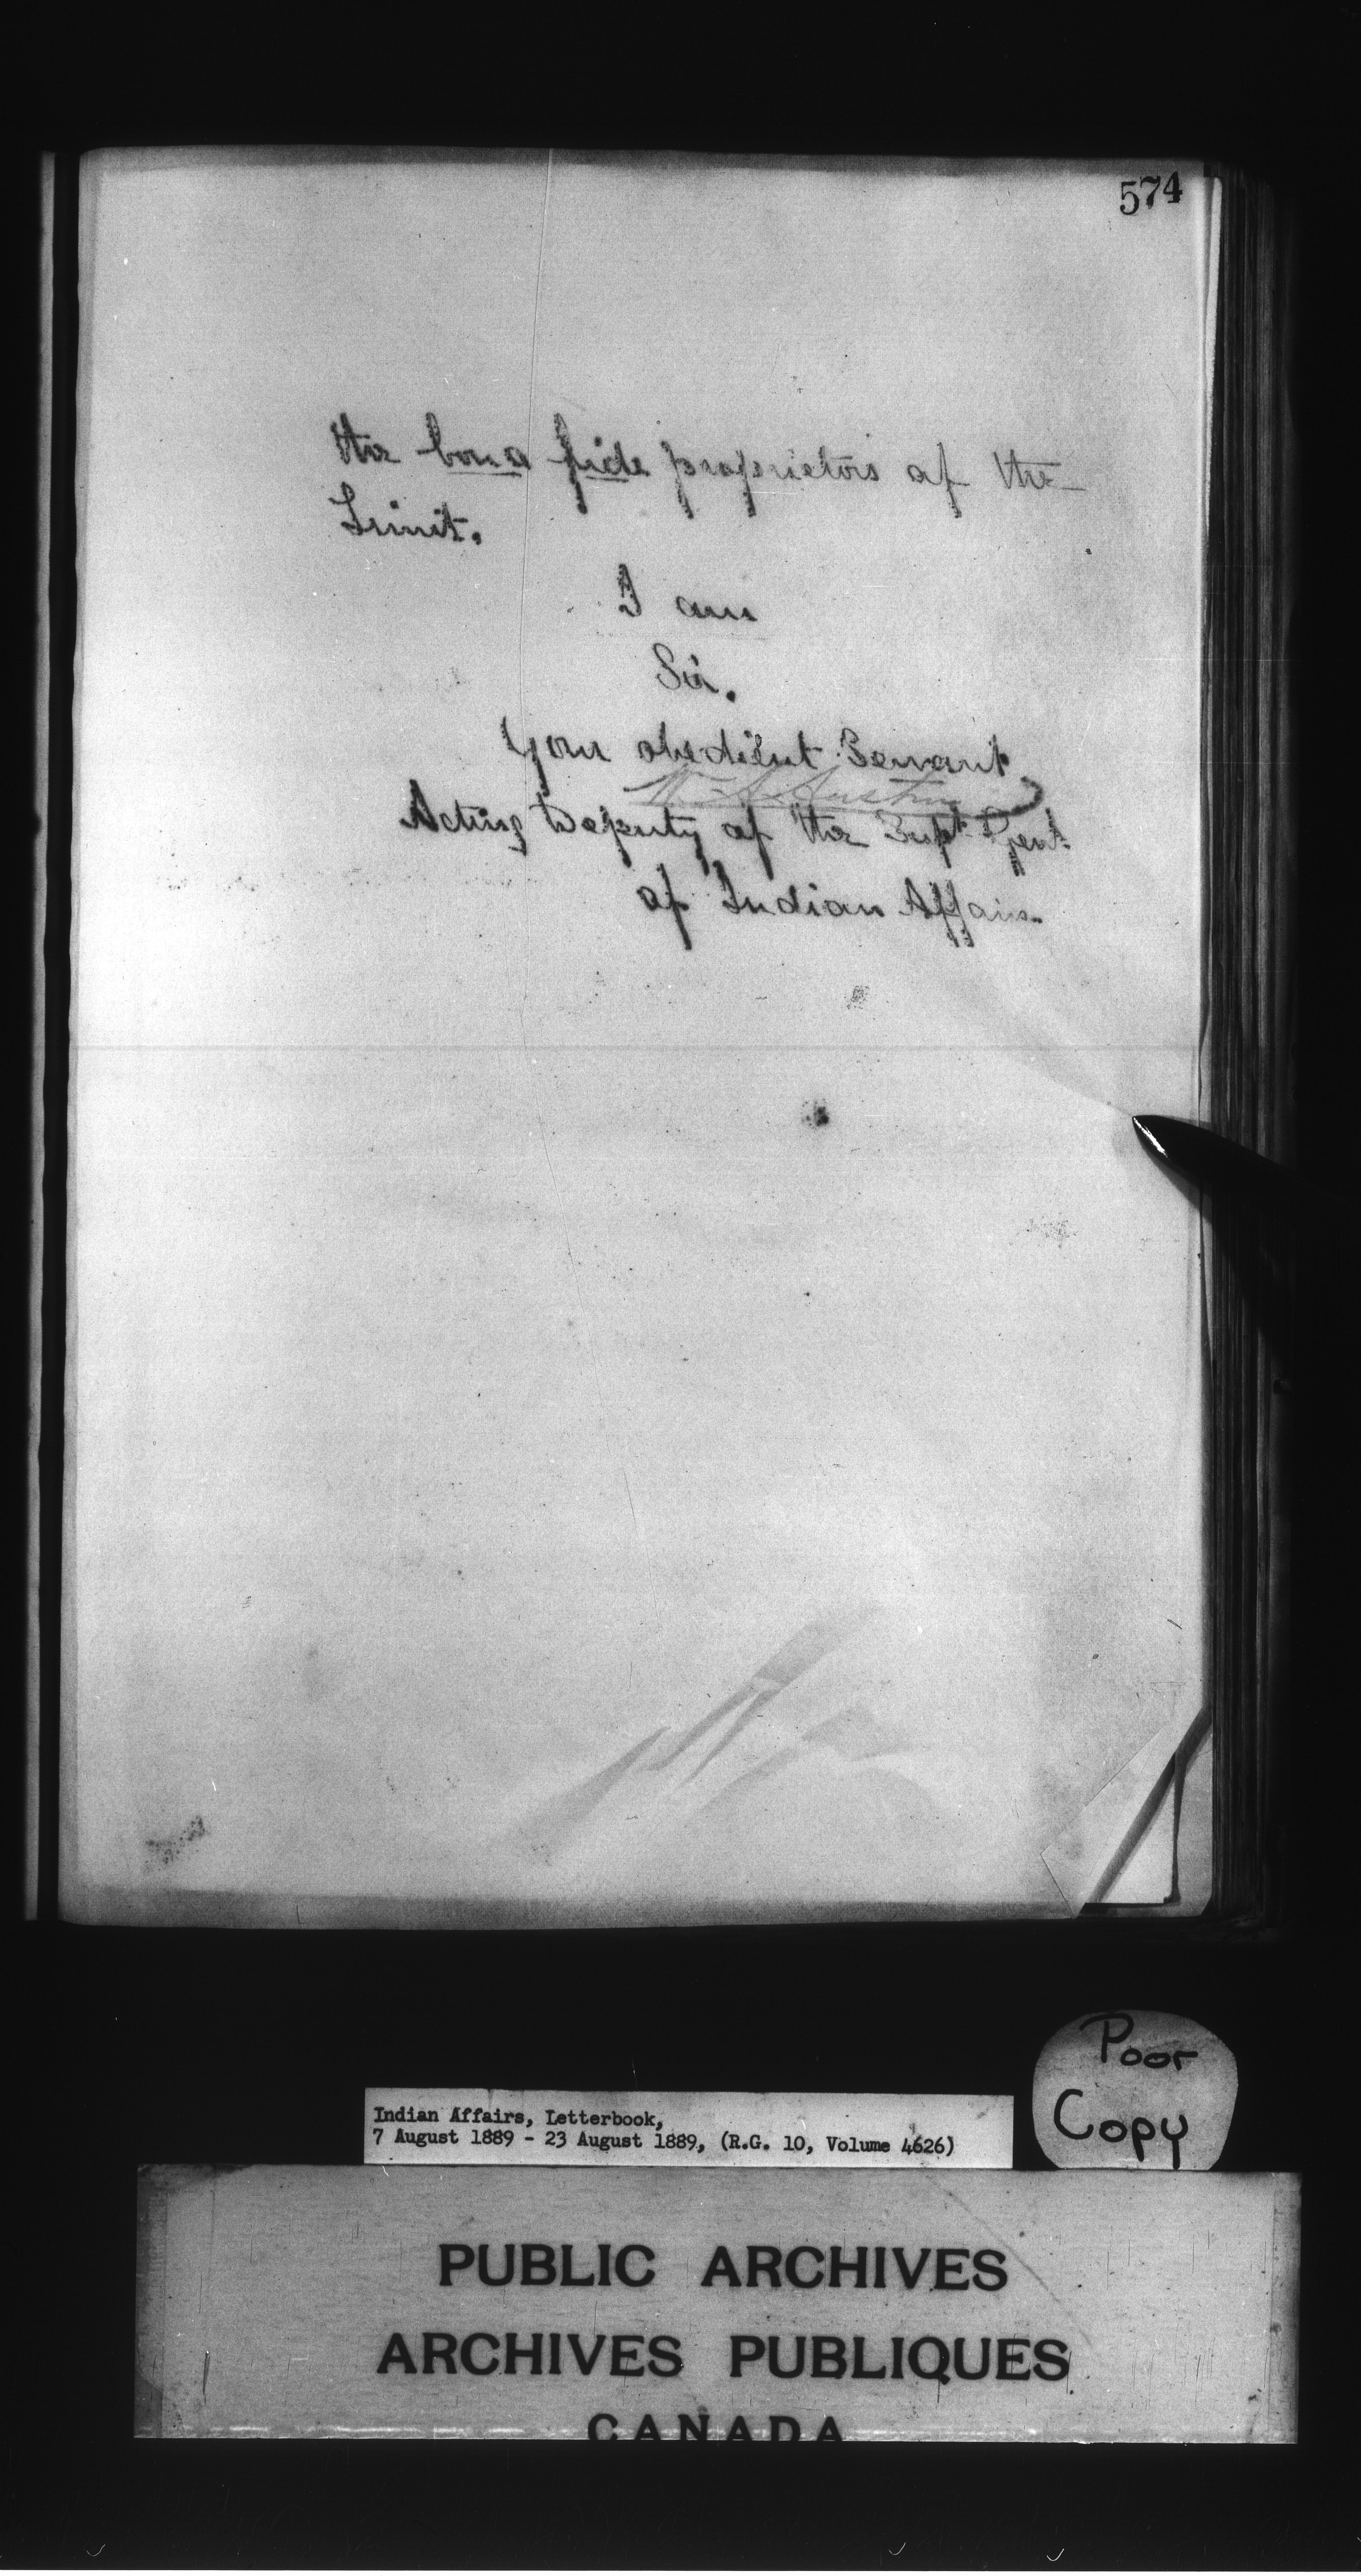 574
the bona fide proprietors of the
Limit.
I am
Sir.
Your obedient Servant
W. A. Austin
Acting Deputy of the Supt. Genl.
of Indian Affairs.
Poor
Copy
Indian Affairs, Letterbook,
7 August 1889 - 23 August 1889, (R.G. 10, Volume 4626)
PUBLIC ARCHIVES
ARCHIVES PUBLIQUES
CANADA